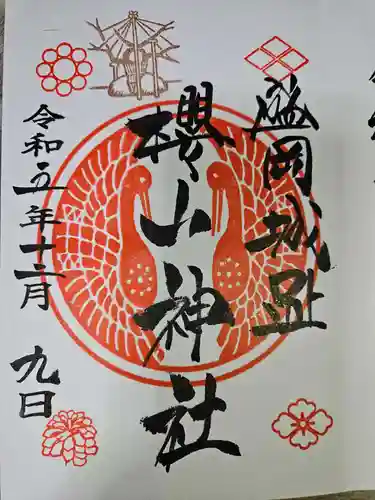 盛岡城趾
櫻山神社
令和五年十二月
九日